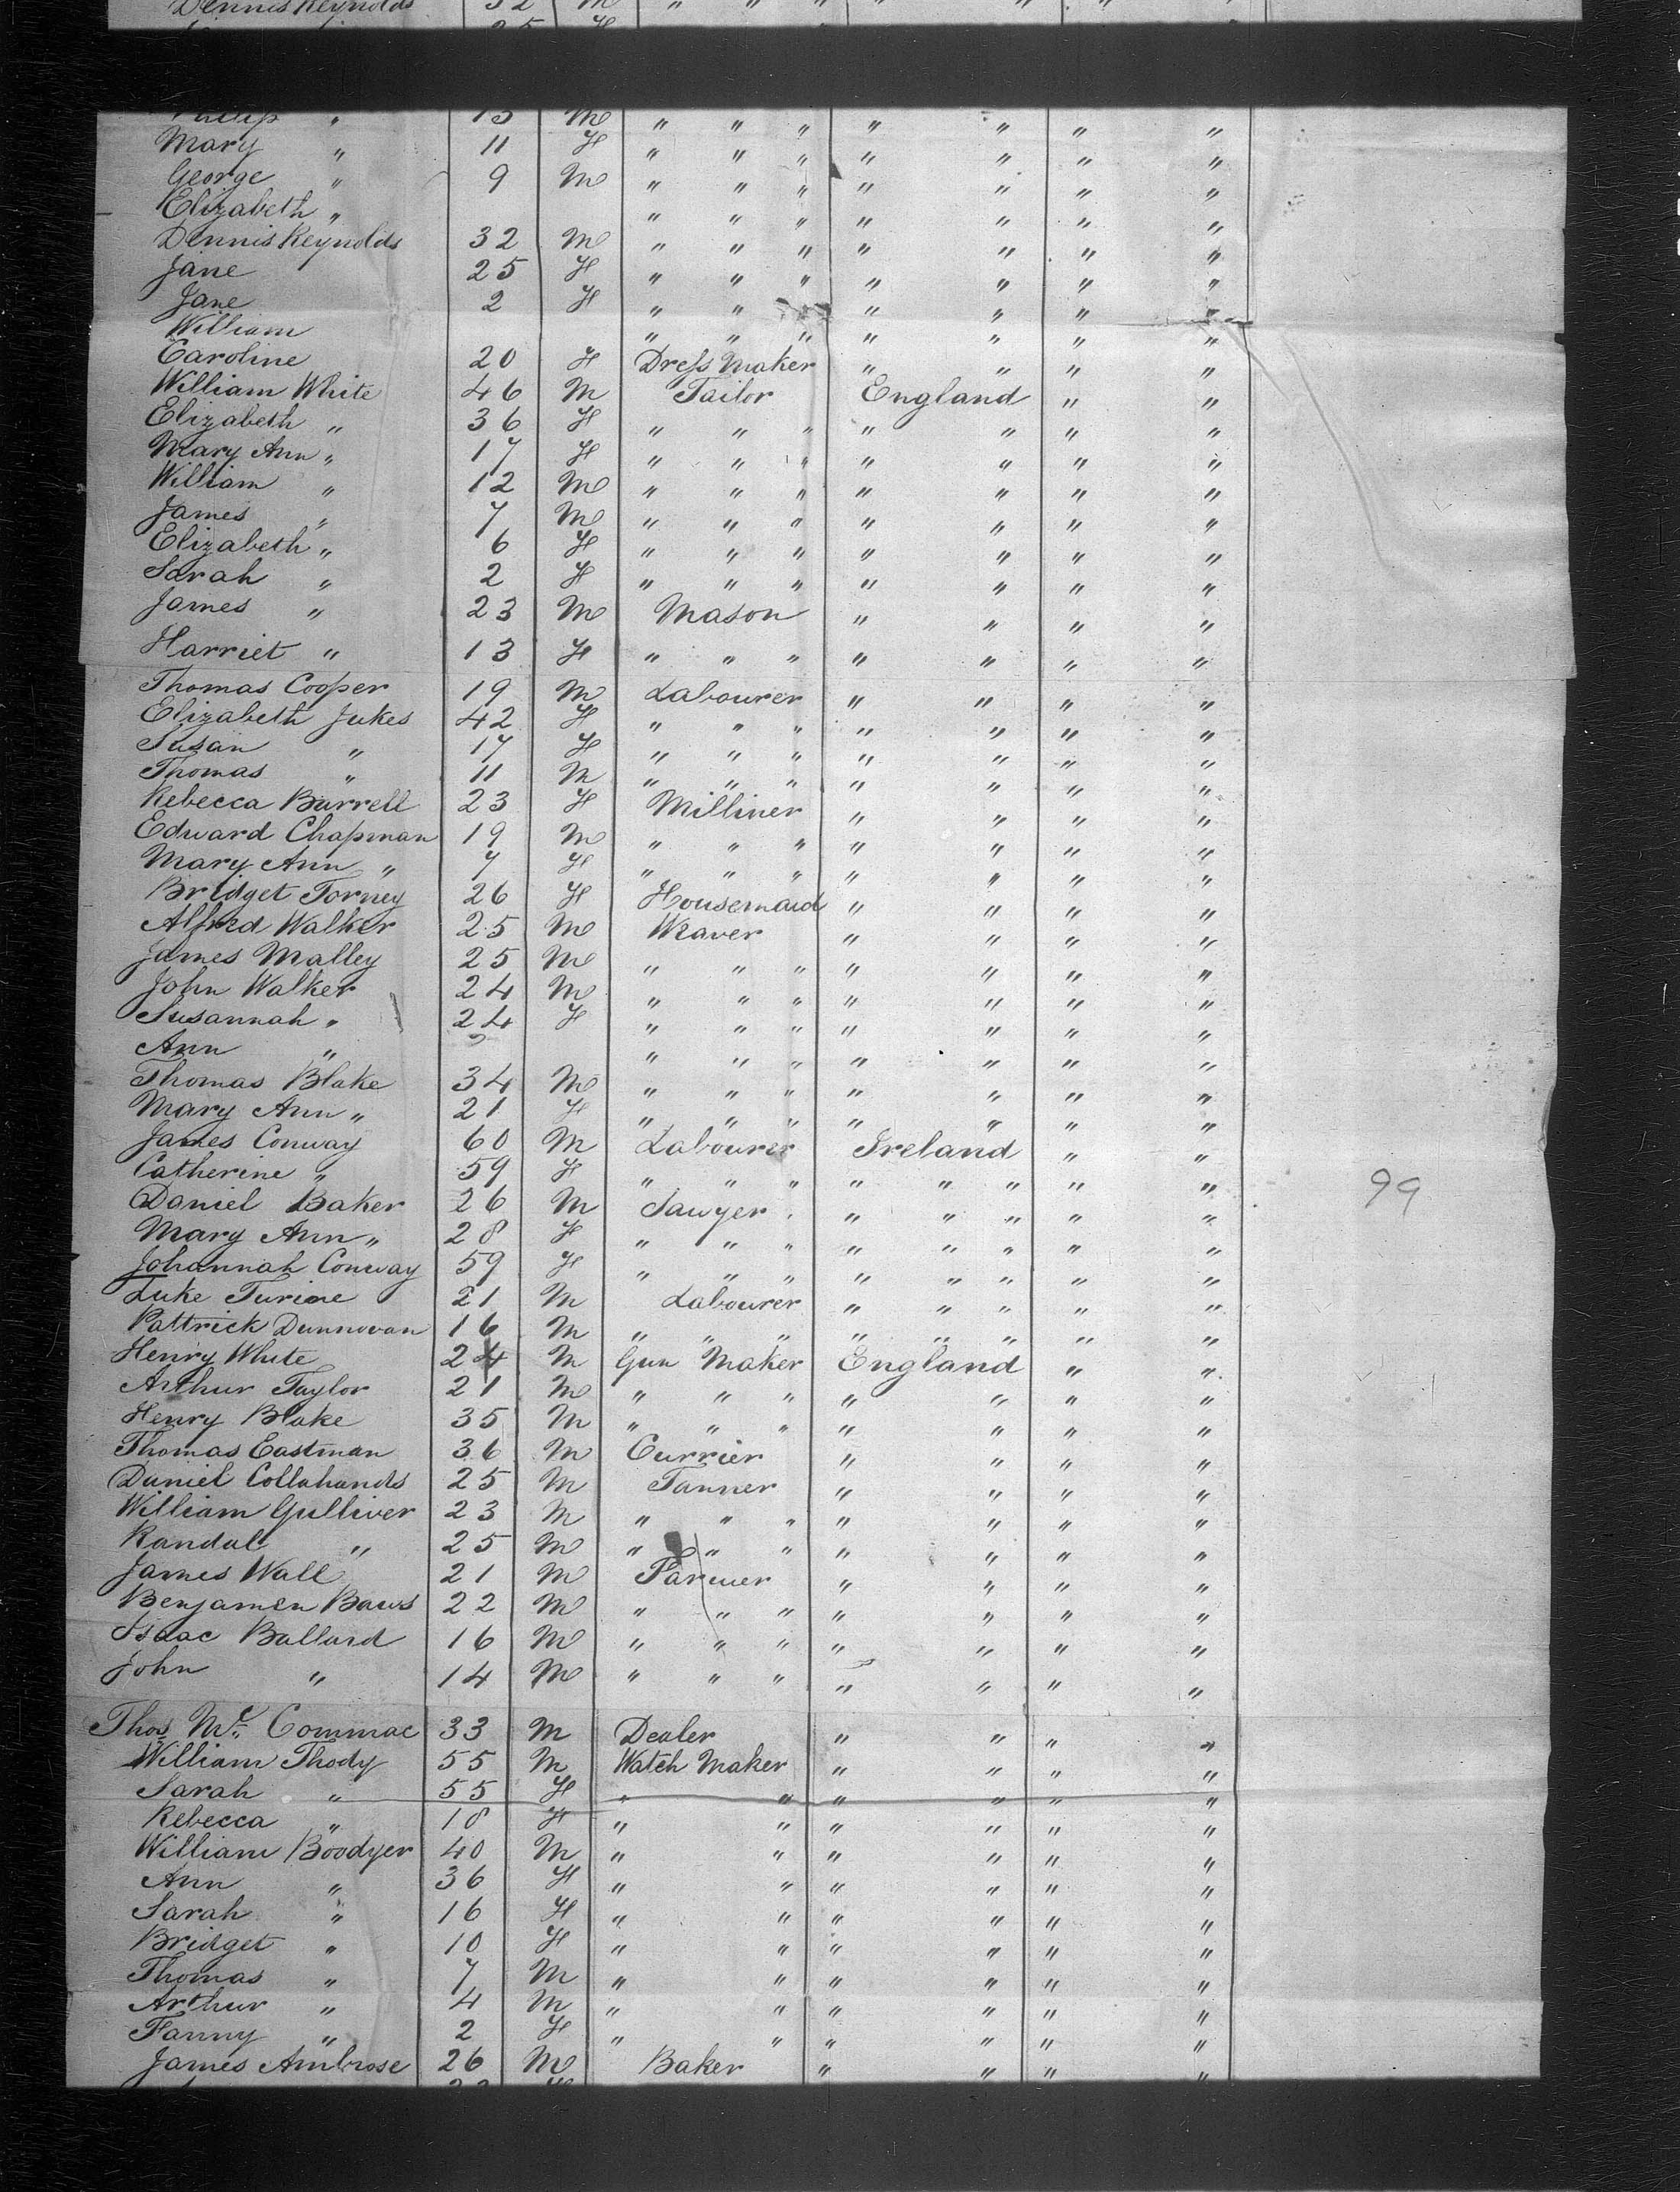 Dennis Reynolds 32 M " " " " " " "
Philip " 13 M " " " " " " "
Mary " 11 F " " " " " " "
George " 9 M " " " " " " "
Elizabeth " " " " " " " "
Dennis Reynolds 32 M " " " " " " "
Jane 25 F " " " " " " "
Jane 2 F " " " " " "
William " " " " " " "
Caroline 20 F Dress Maker " " " "
William White 46 M Tailor England " "
Elizabeth " 36 F " " " " " " "
Mary Ann " 17 F " " " " " " "
William " 12 M " " " " " " "
James " 7 M " " " " " " "
Elizabeth " 6 F " " " " " " "
Sarah " 2 F " " " " " " "
James " 23 M Mason " " " "
Harriet " 13 F " " " " " " "
Thomas Cooper 19 M Labourer " " " "
Elizabeth Jukes 42 F " " " " " " "
Susan " 17 F " " " " " " "
Thomas " 11 M " " " " " " "
Rebecca Burrell 23 F Milliner " " " "
Edward Chapman 19 M " " " " " " "
Mary Ann " 7 F " " " " " " "
Bridget Torney 26 F Housemaid " " " "
Alfred Walker 25 M Weaver " " " "
James Malley 25 M " " " " " " "
John Walker 24 M " " " " " " "
Susannah " 24 F " " " " " " "
Ann " " " " " " " "
Thomas Blake 34 M " " " " " " "
Mary Ann " 21 F " " " " " " "
James Conway 60 M Labourer Ireland " "
Catherine " 59 F " " " " " " " "
Daniel Baker 26 M Sawyer " " " " "
Mary Ann " 28 F " " " " " " " "
Johannah Conway 59 F " " " " " " " "
Luke Turine 21 M Labourer " " " " "
Pattrick Dunnovan 16 M " " " " " " " "
Henry White 24 M Gun Maker England " "
Arthur Taylor 21 M " " " " " " "
Henry Blake 35 M " " " " " " "
Thomas Eastman 36 M Currier " " " "
Daniel Collahands 25 M Tanner " " " "
William Gulliver 23 M " " " " " " "
Randal " 25 M " " " " " " "
James Wall 21 M Farmer " " " "
Benjamen Baws 22 M " " " " " " "
Isaac Ballard 16 M " " " " " " "
John " 14 M " " " " " " "
Thos Mc Commac 33 M Dealer " " " "
William Thody 55 M Watch Maker " " " "
Sarah " 55 F " " " " " "
Rebecca " 18 F " " " " " "
William Boodyer 40 M " " " " " "
Ann " 36 F " " " " " "
Sarah " 16 F " " " " " "
Bridget " 10 F " " " " " "
Thomas " 7 M " " " " " "
Arthur " 4 M " " " " " "
Fanny " 2 F " " " " " "
James Ambrose 26 M Baker " " " "
99